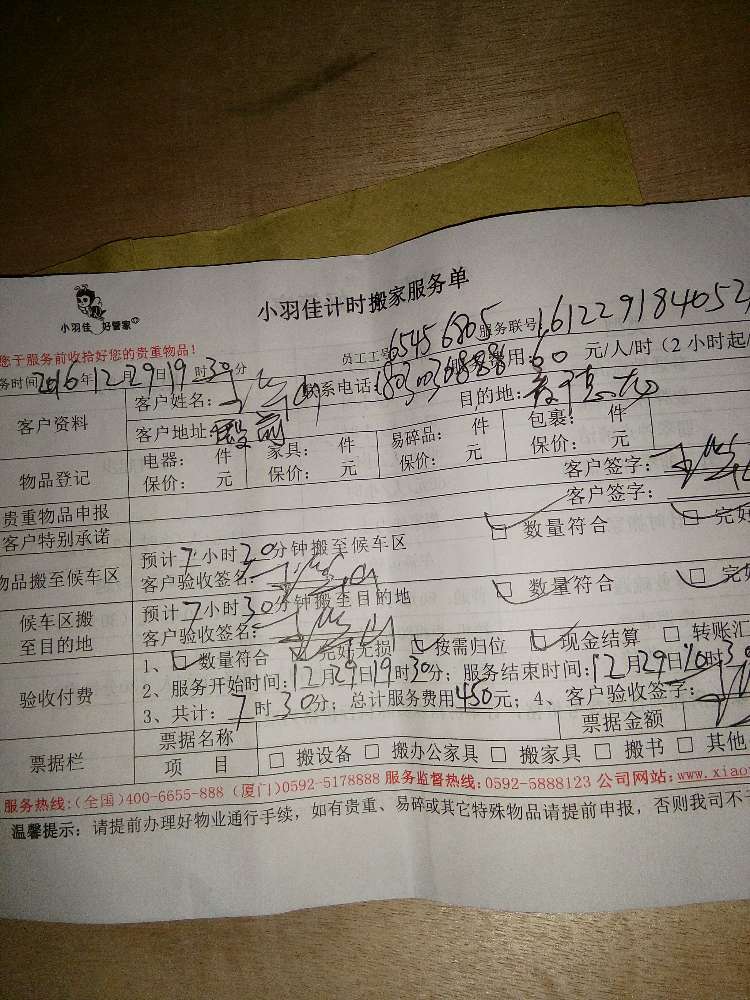 小羽佳 好管家
小羽佳计时搬家服务单
您于服务前收拾好您的贵重物品！
员工工号6545 6805 服务联号:161229184052
务时间2016年12月29日19时30分
客户资料 客户姓名： 联系电话:18030036888 服务费用:60 元/人/时（2小时起/
客户地址: 目的地:
物品登记 电器： 件 家具： 件 易碎品： 件 包裹： 件
保价： 元 保价： 元 保价： 元 保价： 元
贵重物品申报 客户签字：
客户特别承诺 客户签字：
物品搬至候车区 预计7小时30分钟搬至候车区 数量符合 完好
客户验收签名:
候车区搬至目的地 预计7小时30分钟搬至目的地 数量符合 完好
客户验收签名:
验收付费 1、数量符合 完好无损 按需归位 现金结算 转账汇
2、服务开始时间:12月29日19时30分；服务结束时间:12月29日 时30
3、共计：7时30分；总计服务费用450元；4、客户验收签字：
票据栏 票据名称 票据金额
项 目 搬设备 搬办公家具 搬家具 搬书 其他
服务热线:(全国)400-6655-888 (厦门)0592-5178888 服务监督热线:0592-5888123 公司网站:www.xiao
温馨提示：请提前办理好物业通行手续，如有贵重、易碎或其它特殊物品请提前申报，否则我司不予